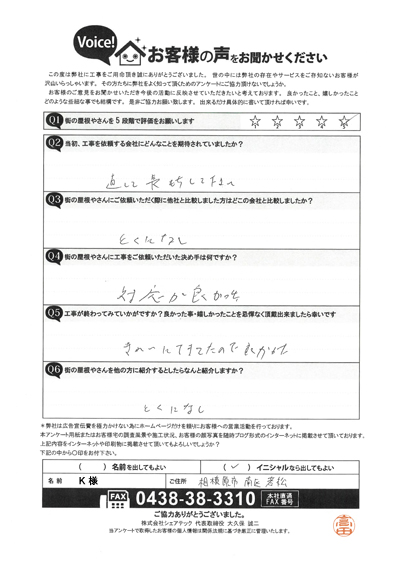 Voice!
お客様の声をお聞かせください
この度は弊社に工事をご用命頂き誠にありがとうございました。世の中には弊社の存在やサービスをご存知ないお客様が
沢山いらっしゃいます。その方たちに弊社をよく知って頂くためのアンケートにご協力頂けないでしょうか。
お客様のご意見をお聞かせいただき今後の活動に反映させていただきたいと考えております。良かったこと、嬉しかったこと
どのような些細な事でも結構です。是非ご協力お願い致します。出来るだけ具体的に書いて頂ければ幸いです。
Q1 街の屋根やさんを5段階で評価をお願いします ☆ ☆ ☆ ☆ ☆
Q2 当初、工事を依頼する会社にどんなことを期待されていましたか?
直して長もちしてほしい
Q3 街の屋根やさんにご依頼いただく際に他社と比較しました方はどこの会社と比較しましたか?
とくになし
Q4 街の屋根やさんに工事をご依頼いただいた決め手は何ですか?
対応が良かった
Q5 工事が終わってみていかがですか?良かった事・嬉しかったことを忌憚なく頂戴出来ましたら幸いです
きれいにできてたので良かった
Q6 街の屋根やさんを他の方に紹介するとしたらなんと紹介しますか?
とくになし
*弊社は広告宣伝費を極力かけない為にホームページだけを頼りにお客様への営業活動を行っております。
本アンケート用紙またはお客様宅の調査風景や施工状況、お客様の顔写真を随時ブログ形式のインターネットに掲載させて頂いております。
上記内容をインターネットや印刷物に掲載させて頂いてもよろしいでしょうか?
下記の中から〇印をお付下さい。
( ) 名前を出してもよい ( ✓ ) イニシャルなら出してもよい
名前 K 様 ご住所 相模原市 南区 若松
FAX 0438-38-3310 本社直通 FAX番号
ご協力ありがとうございました。
株式会社シェアテック 代表取締役 大久保 誠二
当アンケートで取得したお客様の個人情報は関係法規に基づき厳正に管理いたします。